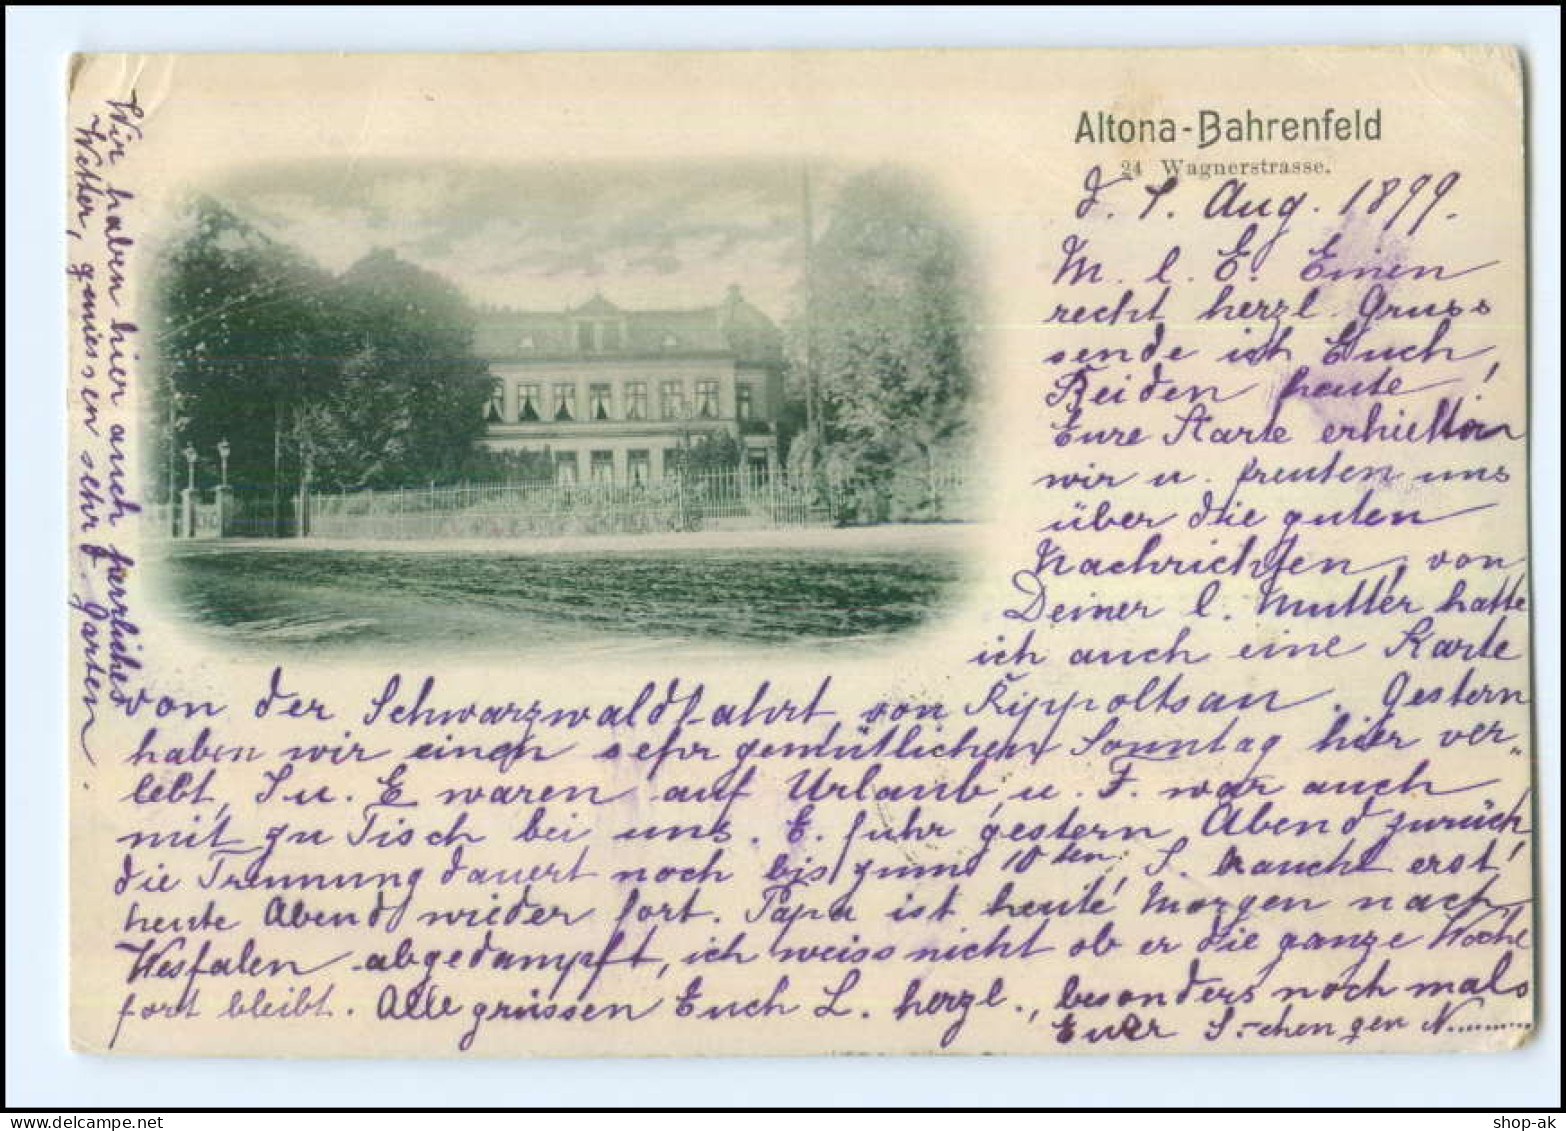 Altona-Bahrenfeld
24 Wagnerstrasse.
d. 7. Aug. 1899.
M. l. E. Einen
recht herzl. Gruss
sende ich Euch
Beiden heute!
Eure Karte erhielten
wir u. freuten uns
über die guten
Nachrichten, von
Deiner l. Mutter hatte
ich auch eine Karte
von der Schwarzwaldfahrt, von Rippoltsau. Gestern
haben wir einen sehr gemütlichen Sonntag hier ver-
lebt, S u. E waren auf Urlaub, u. F. war auch
mit zu Tisch bei uns. E. fuhr gestern Abend zurück
die Trennung dauert noch bis zum 10ten, S. raucht erst
heute Abend wieder fort. Papa ist heute Morgen nach
Wesfalen abgedampft, ich weiss nicht ob er die ganze Woche
fort bleibt. Alle grüssen Euch L. herzl., besonders noch mals
Euer S-chen gen N..........
Wir haben hier auch herrliches
Wetter, geniessen sehr d. Garten.
shop-ak